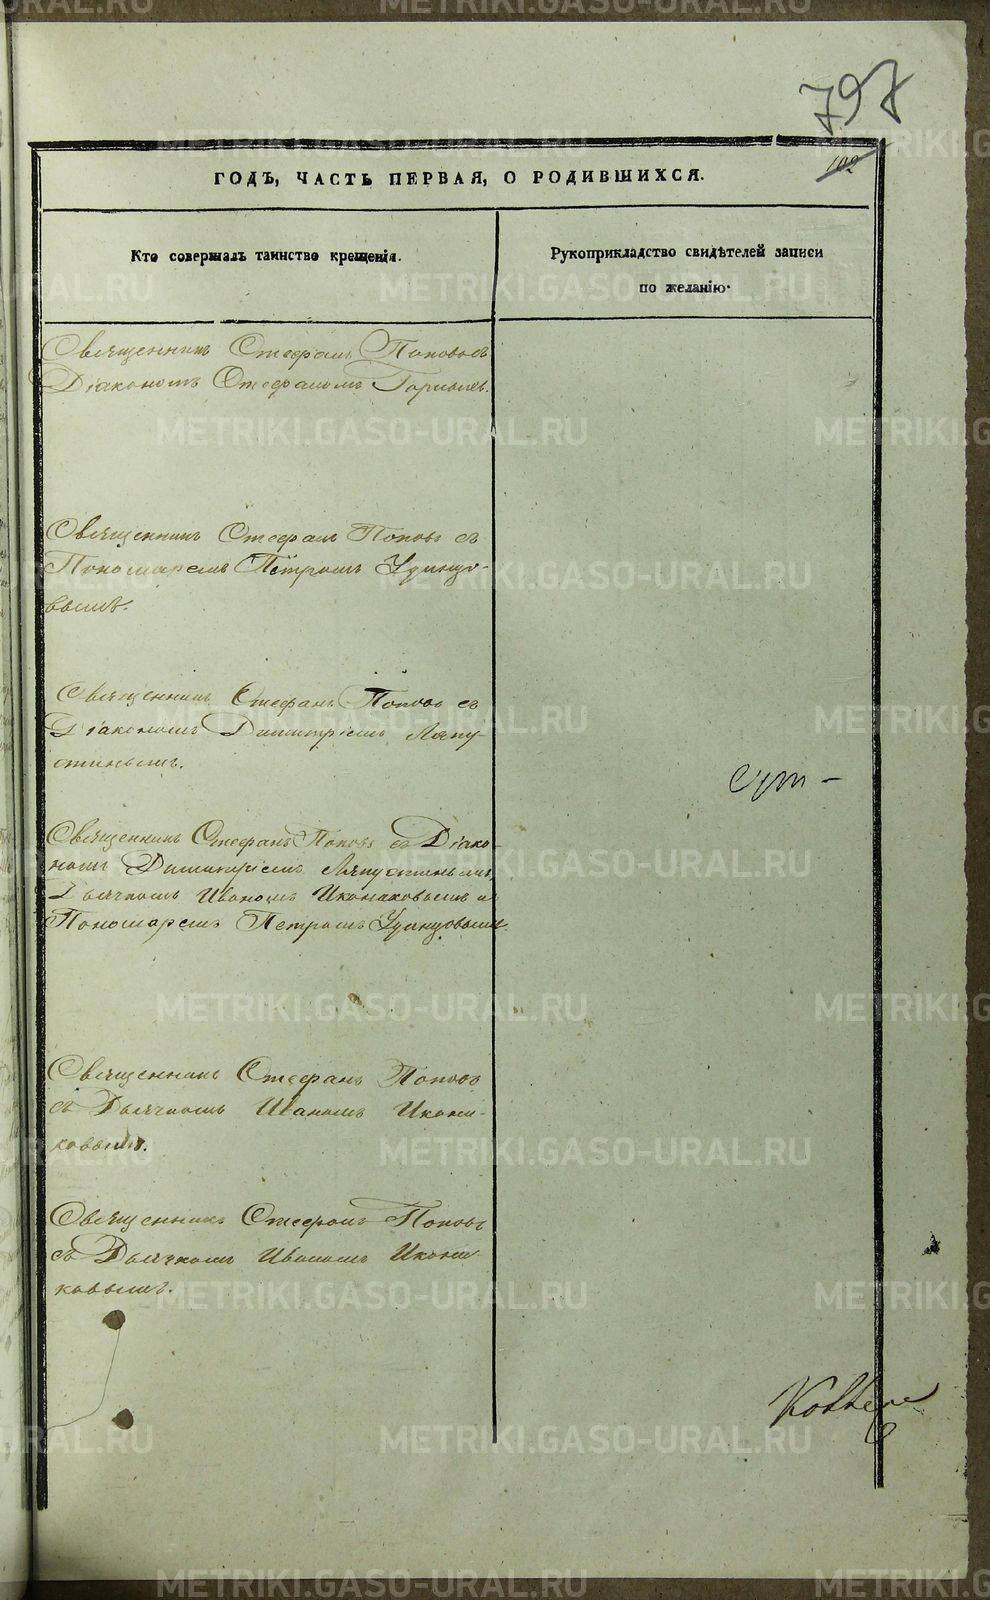 797
102
ГОДЪ, ЧАСТЬ ПЕРВАЯ, О РОДИВШИХСЯ.
Кто совершалъ таинство крещенія.
Рукоприкладство свидѣтелей записи
по желанію.
Священникъ Стефанъ Поповъ съ
Діакономъ Стефаномъ
Священникъ Стефанъ Поповъ съ
Пономаремъ Петромъ Удинцо-
вымъ.
Священникъ Стефанъ Поповъ съ
Діакономъ Димитріемъ Ляпу-
стинымъ.
Священникъ Стефанъ Поповъ съ Діако-
номъ Димитріемъ Ляпустинымъ,
Дьячкомъ Иваномъ Иконниковымъ и
Пономаремъ Петромъ Удинцовымъ.
Священникъ Стефанъ Поповъ
съ Дьячкомъ Иваномъ Икони-
ковымъ.
Священникъ Стефанъ Поповъ
съ Дьячкомъ Иваномъ Икони-
ковымъ.
METRIKI.GASO-URAL.RU